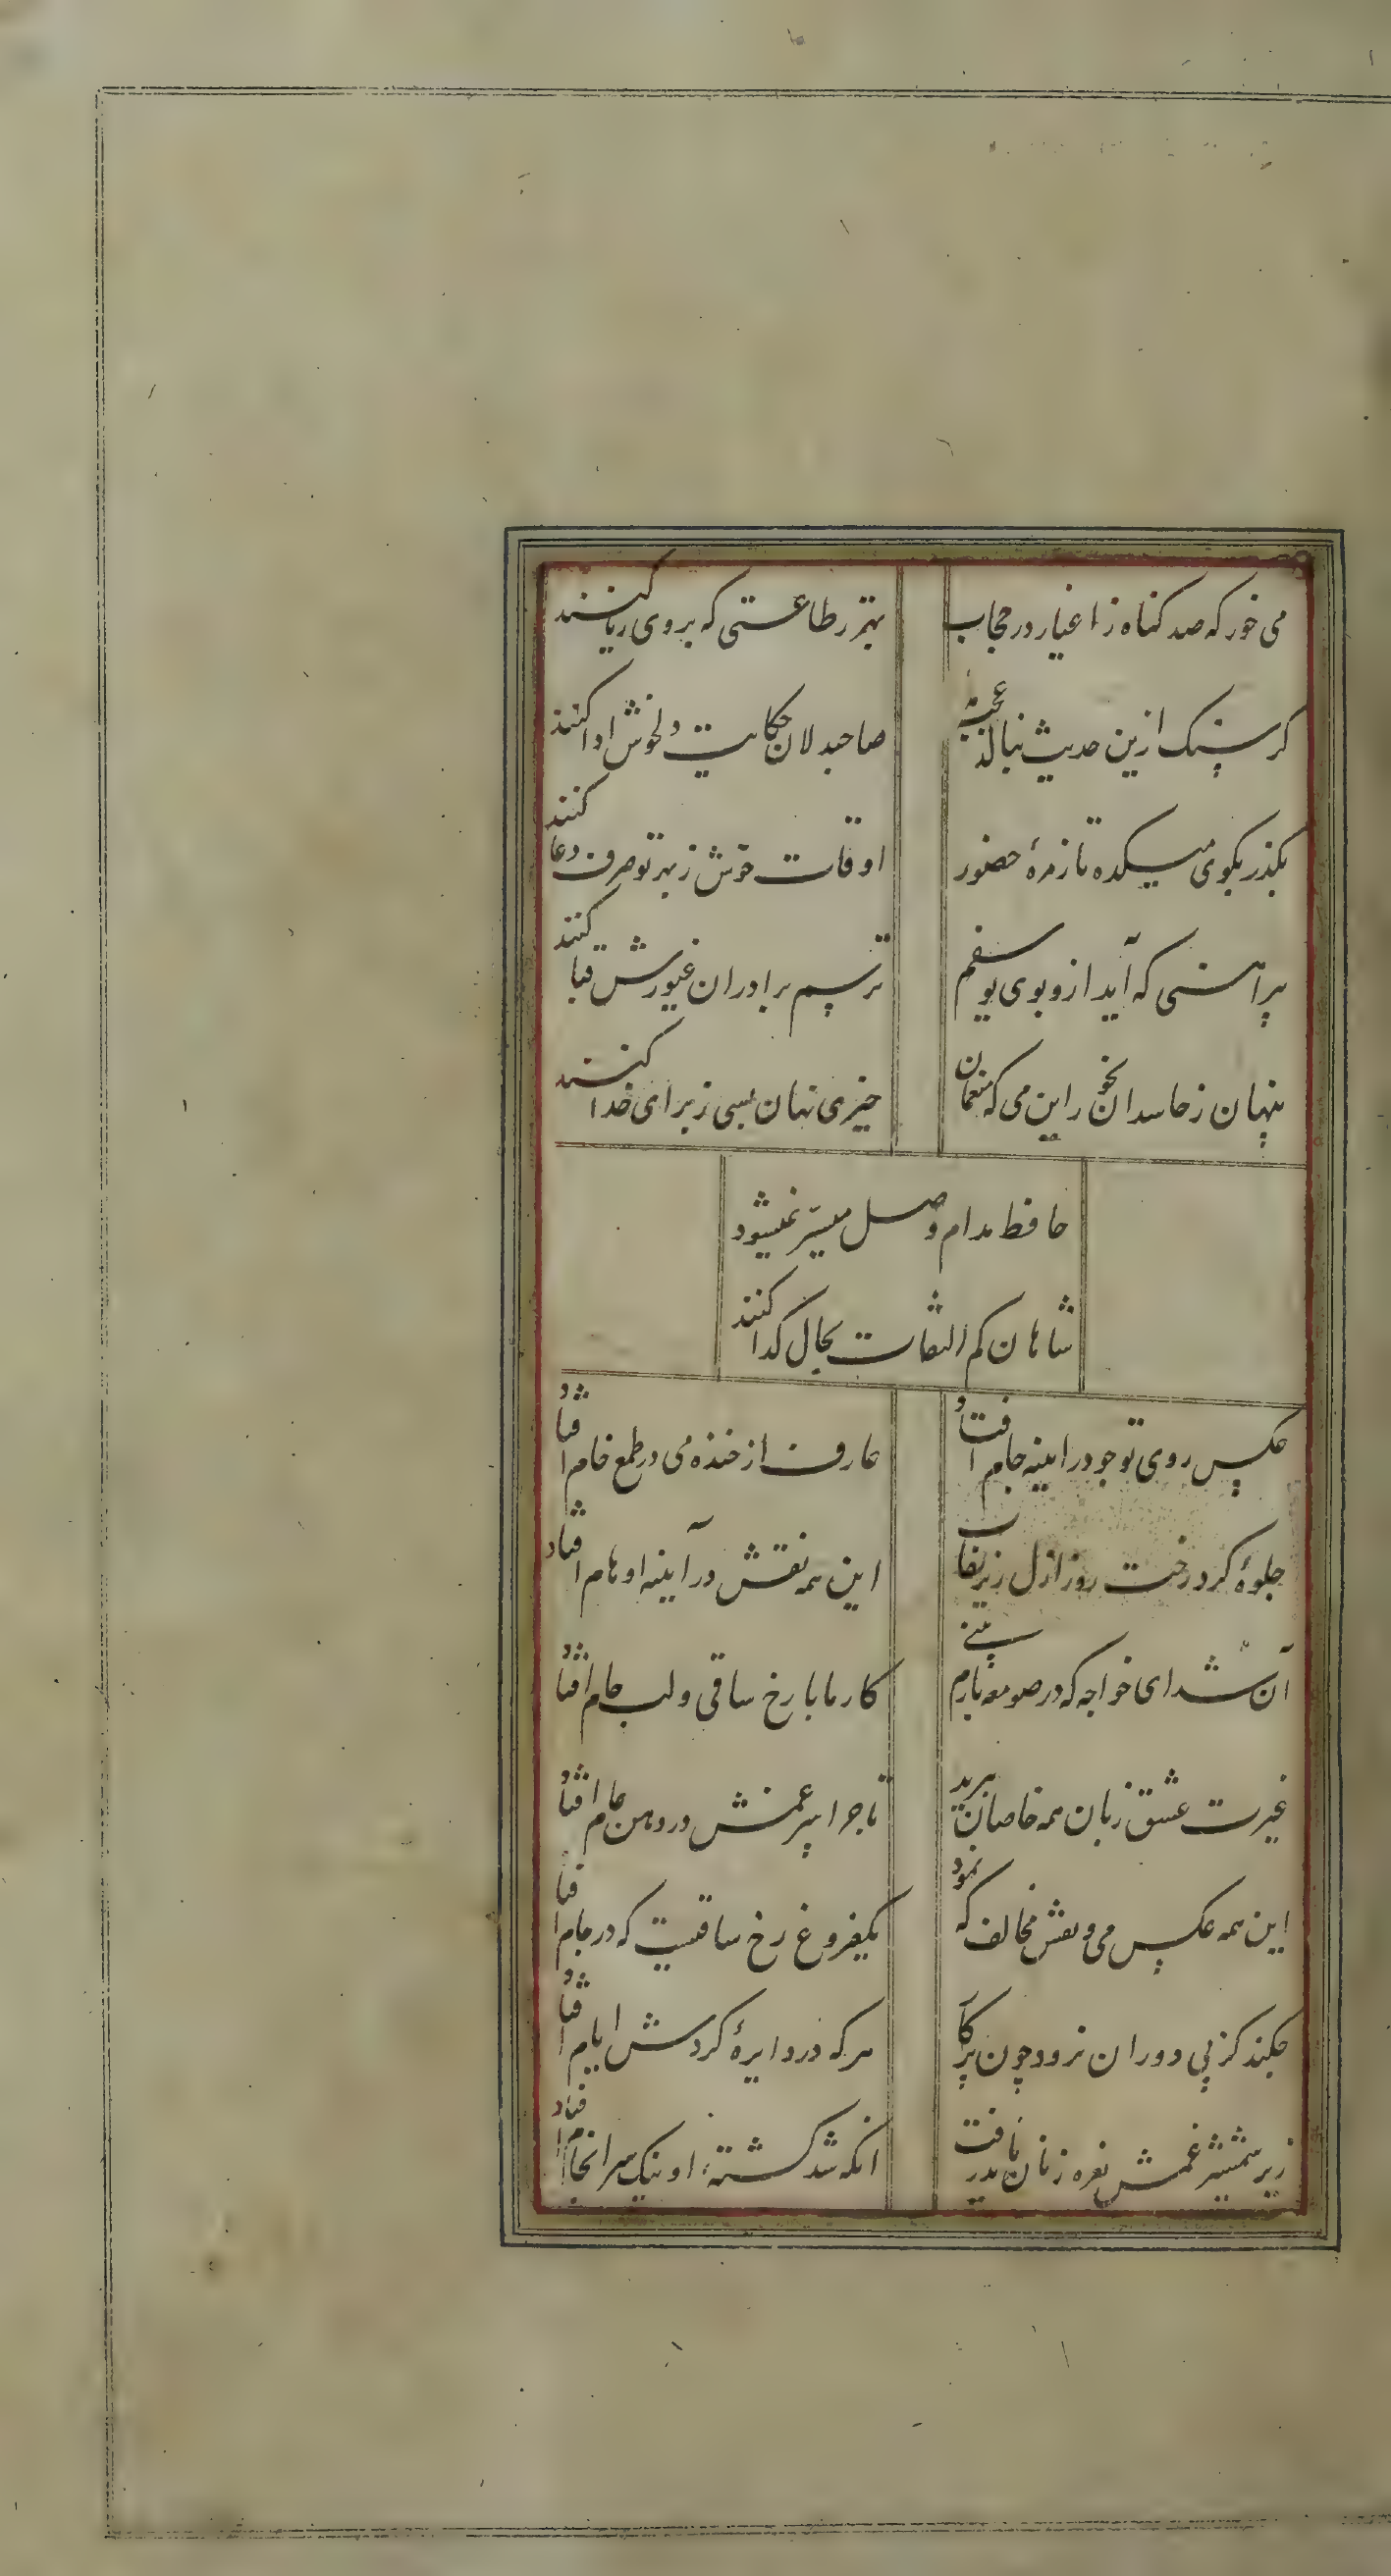 می خور که صد کناه ز اغیار در حجاب بهتر ز طاعتی که بروی ریا کنند
کر سنک ازین حدیث بنالد عجب مدار صاحبدلان حکایت دلخوش ادا کنند
بکذر بکوی میکده تا زمرهٔ حضور اوقات خوش ز بهر تو صرف دعا کنند
پیراهنی که آید ازو بوی یوسفم ترسم برادران غیورش قبا کنند
پنهان ز حاسدان بخوان را این می که منعمان خیری نهان بسی ز برای خدا کنند
حافظ مدام وصل میسّر نمیشود
شاهان کم التفات بحال کدا کنند
عکس روی تو جو در اینه جام افتاد عارف از خنده می در طمع خام افتاد
جلوهٔ کرد رخت روز ازل زیر نقاب این همه نقش در آینه اوهام افتاد
آن شد ای خواجه که در صومعه بازم بینی کار ما با رخ ساقی و لب جام افتاد
غیرت عشق زبان همه خاصان ببرید تا جرا سرّ غمش در دهن عام افتاد
این همه عکس می و نقش مخالف که نمود یکفروغ رخ ساقیست که در جام افتاد
جکند کز پی دوران نرود چون پرکار هر که در دایرهٔ کردش ایام افتاد
زیر شمشیر غمش نعره زنان باید رفت انکه شد کشتهٔ او نیک سرانجام افتاد